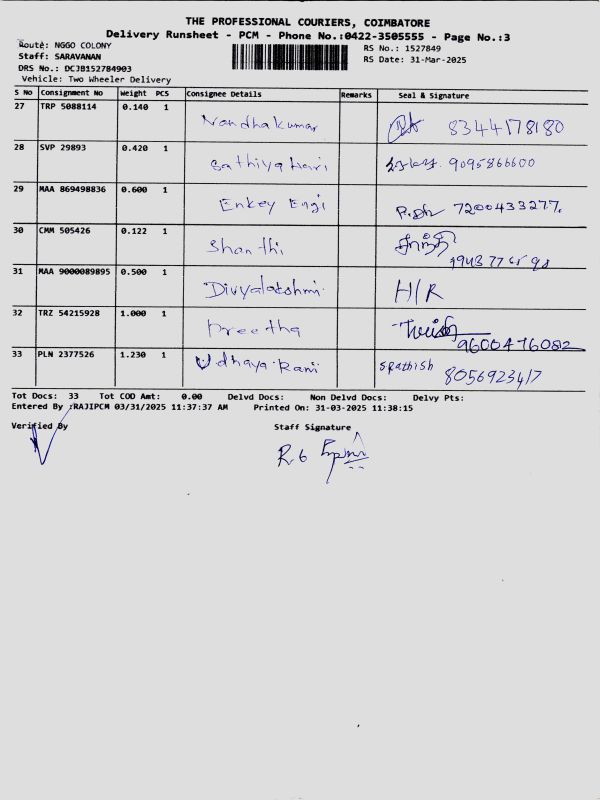 THE PROFESSIONAL COURIERS, COIMBATORE
Delivery Runsheet - PCM - Phone No.:0422-3505555 - Page No.:3
Route: NGGO COLONY
RS No.: 1527849
Staff: SARAVANAN
RS Date: 31-Mar-2025
DRS No.: DCJB152784903
Vehicle: Two Wheeler Delivery
S No Consignment No Weight PCS Consignee Details Remarks Seal & Signature
27 TRP 5088114 0.140 1 Nandhakumar 8344178180
28 SVP 29893 0.420 1 Sathiya Hari 9095866600
29 MAA 869498836 0.600 1 Enkey Engi 7200433277
30 CMM 505426 0.122 1 Shanthi சாந்தி
31 MAA 9000089895 0.500 1 Divyalakshmi H/R
32 TRZ 54215928 1.000 1 Preetha 9600476082
33 PLN 2377526 1.230 1 Udhaya Rani Spathish 8056923417
Tot Docs: 33 Tot COD Amt: 0.00 Delvd Docs: Non Delvd Docs: Delvy Pts:
Entered By :RAJIPCM 03/31/2025 11:37:37 AM Printed On: 31-03-2025 11:38:15
Verified By Staff Signature
R G